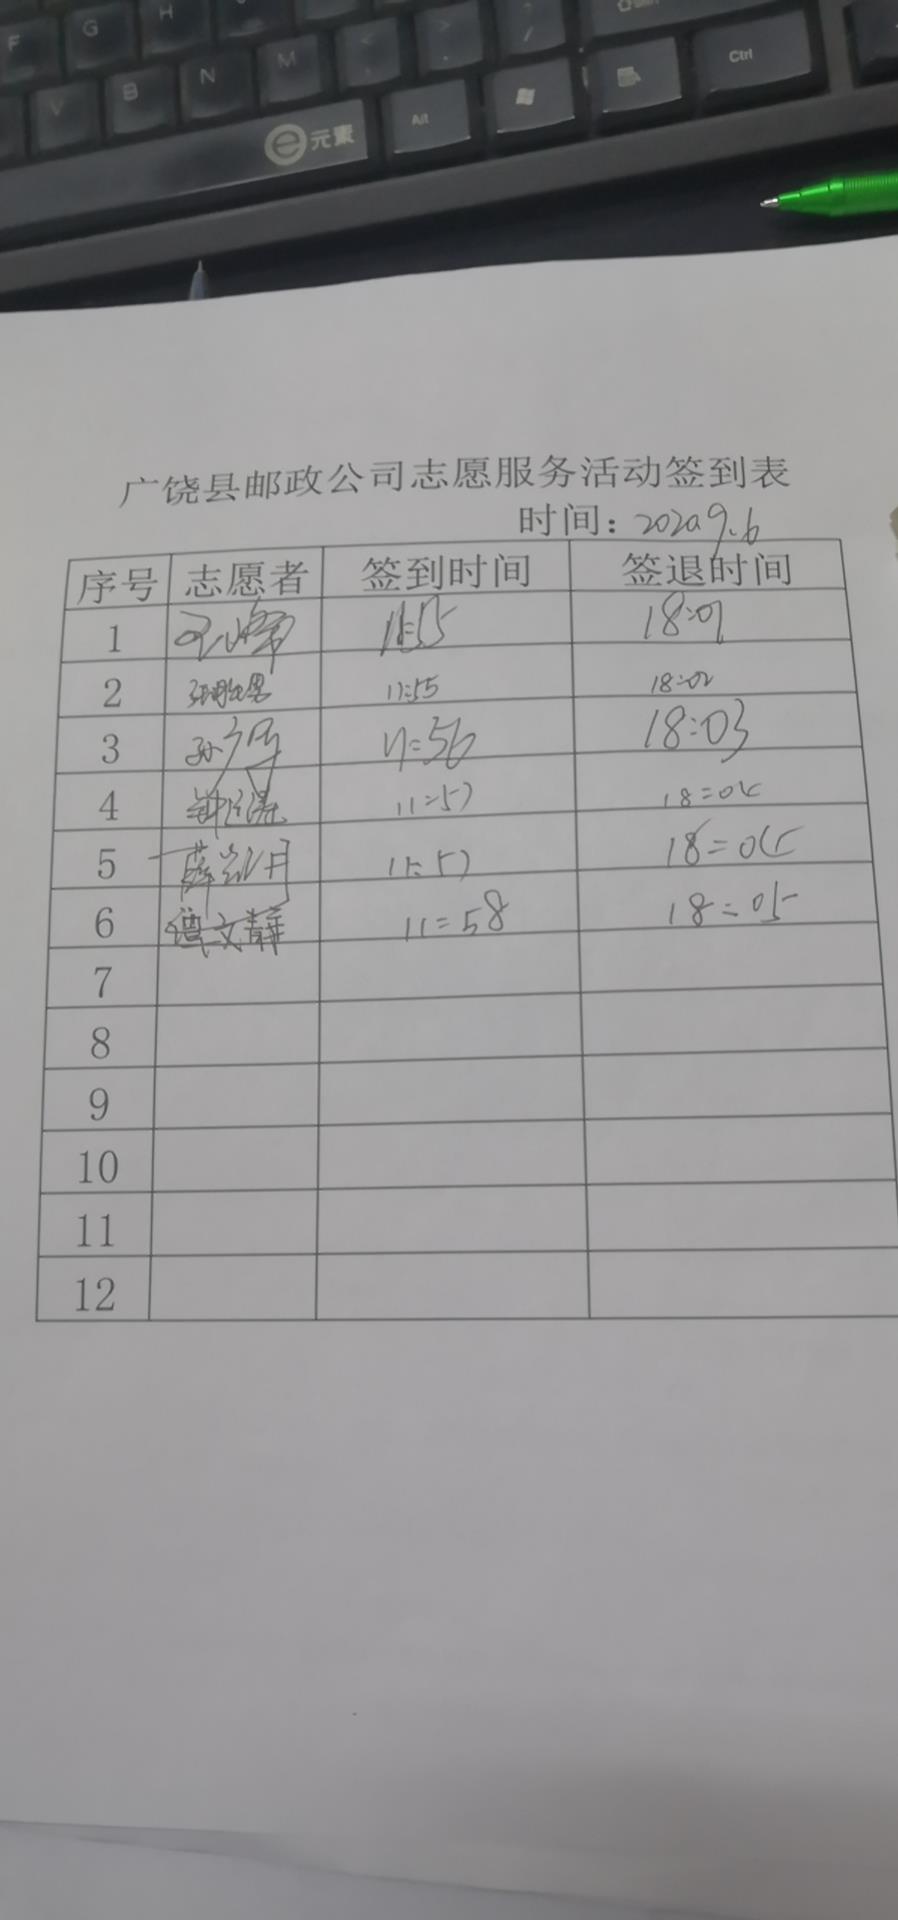 F G H
V B N M
e元素 Alt Ctrl
广饶县邮政公司志愿服务活动签到表
时间：2020.9.6
序号 志愿者 签到时间 签退时间
1 11:55 18:01
2 11:55 18:02
3 孙 11:56 18:03
4 11:57 18:04
5 薛 11:57 18:05
6 谭文静 11:58 18:05
7
8
9
10
11
12